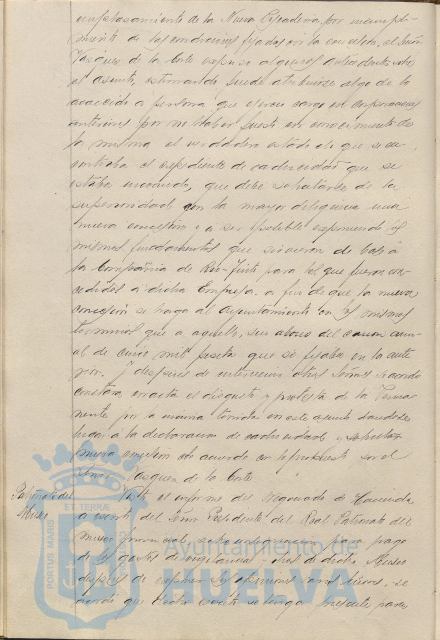 emplazamiento de la Nueva Pescadería por incumpli-
miento de las condiciones fijadas en la concesión, el Señor
Vázquez de la Corte expuso algunos antecedentes sobre
el asunto, estimando puede atribuirse algo de lo
acaecido a persona que ejerció cargo en Corporaciones
anteriores por no haber puesto en conocimiento de
la misma el verdadero estado en que se en-
contraba el expediente de caducidad que se
estaba incoando, que debe solicitarse de la
superioridad con la mayor diligencia una
nueva concesión y a ser posible exponiendo los
mismos fundamentos que sirvieron de base a
la Compañía de Rio-Tinto para los que fueron con-
cedidos a dicha Empresa, a fin de que la nueva
concesión se haga al Ayuntamiento en los mismos
terminos que a aquella, sin abono del canon anu-
al de cinco mil pesetas que se fijaba en la ante-
rior. Y despues de intervenir otros Señores se acordó
constara en acta el disgusto y protesta de la Perma-
nente por la manera tomada en este asunto dando
lugar a la declaracion de caducidad y solicitar
nueva concesion de acuerdo con lo propuesto por el
Señor Vazquez de la Corte.
Patronato del
Museo
Visto el informe del Negociado de Hacienda
a escrito del Señor Presidente del Real Patronato del
museo provincial, sobre consignacion para pago
de los gastos de vigilancia de dicho Museo
despues de exponer su opinion varios Señores, se
acordó que dicho escrito se tenga presente para
PORTUS MARIS
ET TERRAE
Ayuntamiento de
HUELVA